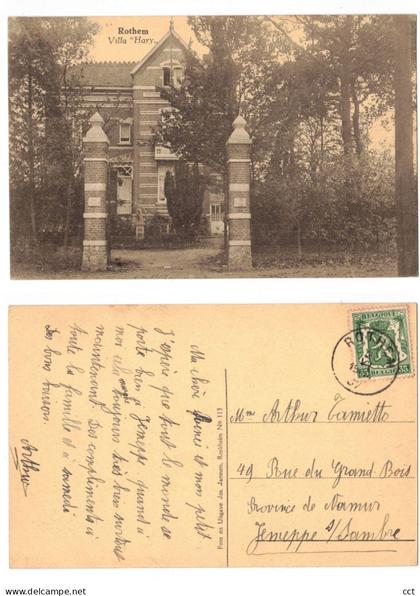 Rothem
Villa "Hary„
BELGIQUE
35 35
BELGIE
ROTHEM
Ma chère et mon petit
J'espère que tout le monde se
porte bien Jemeppe quand à
moi cela va toujours très bien surtout
maintenant. Des compliments à
toute la famille et à samedi
Des bons baisers.
Arthur
Foto en Uitgave Jos. Jansen, Reckheim No 113
Mme Arthur Tamietto
49 Rue du Grand Bois
Province de Namur
Jemeppe s/Sambre
cct